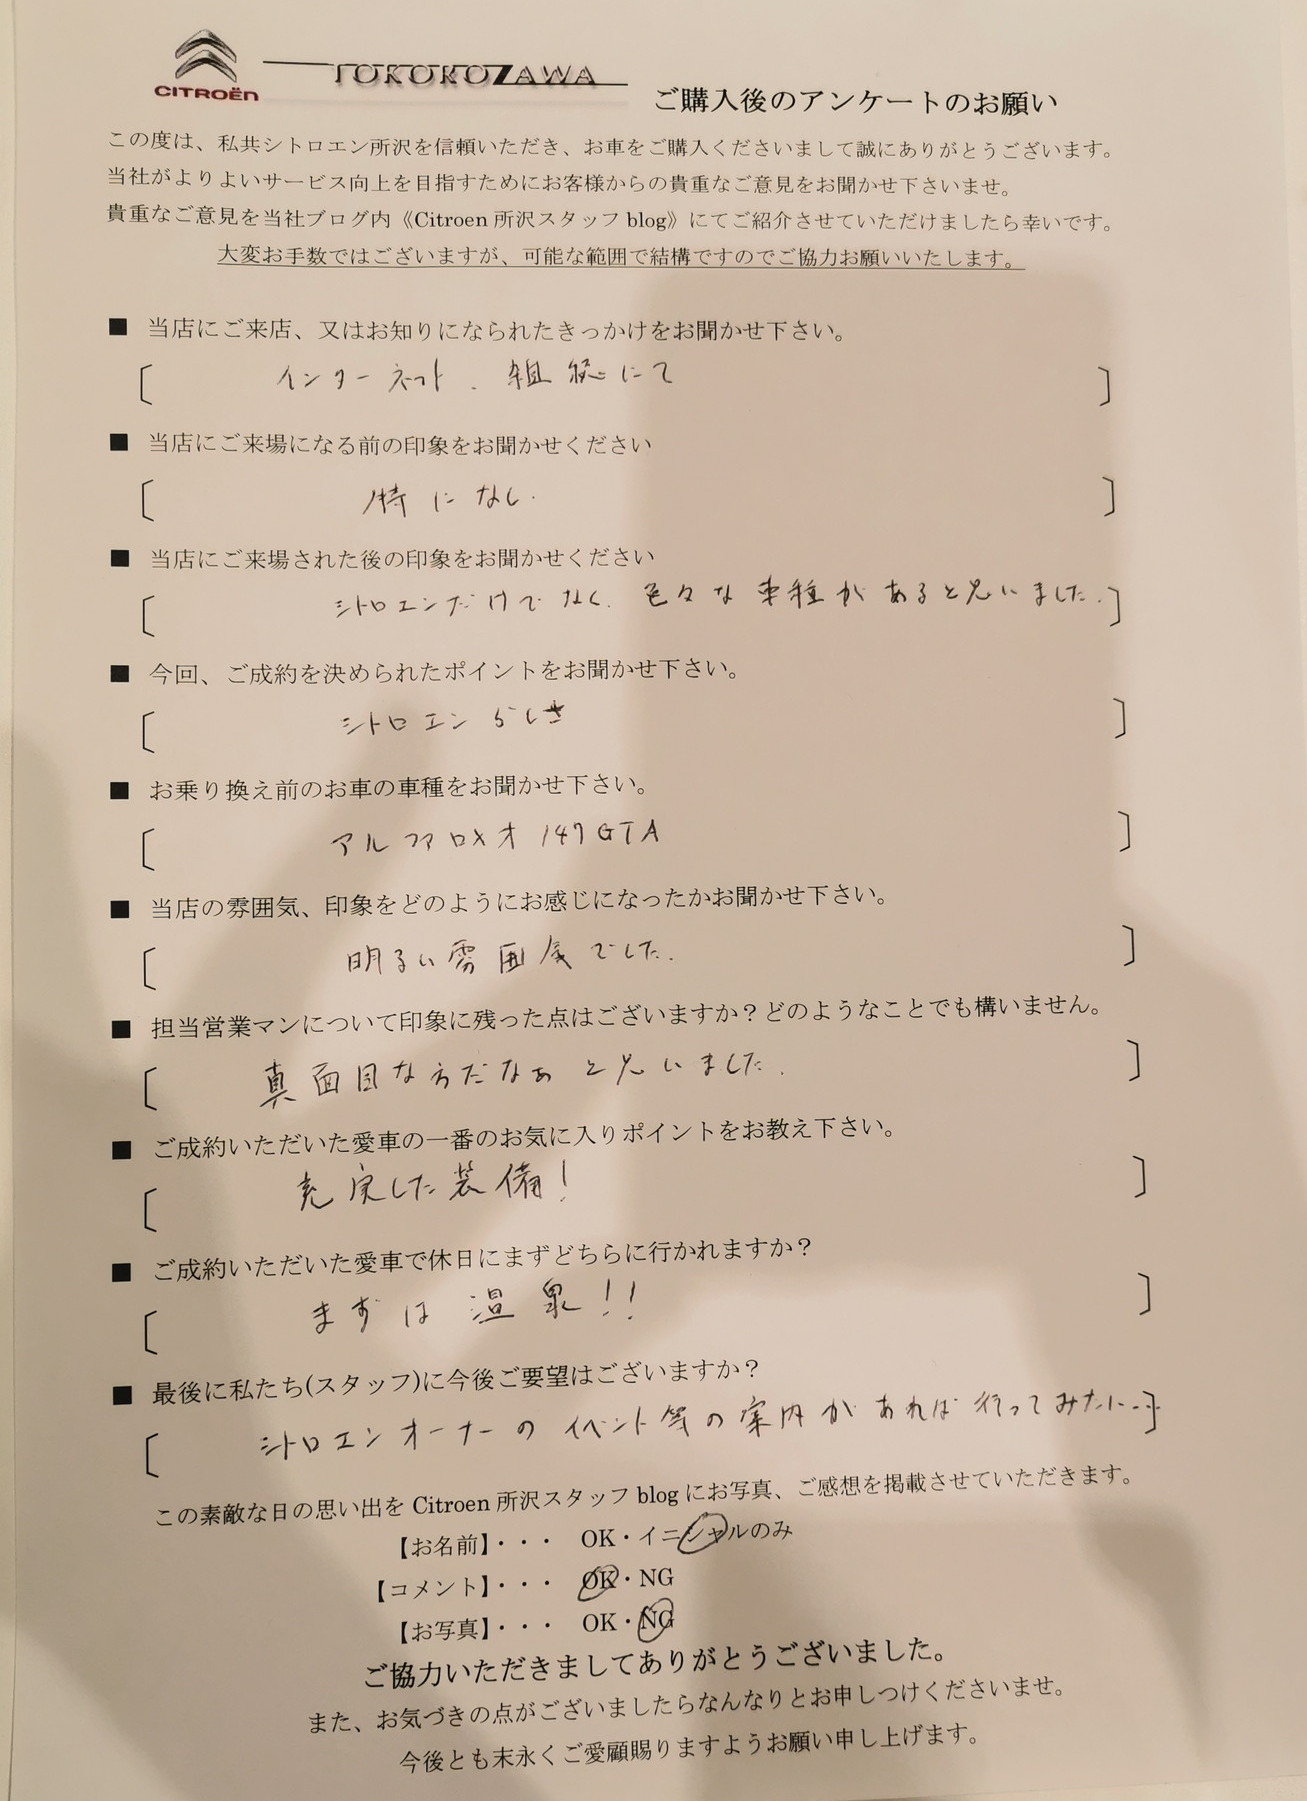 CITROËN
TOKOROZAWA
ご購入後のアンケートのお願い
この度は、私共シトロエン所沢を信頼いただき、お車をご購入くださいまして誠にありがとうございます。
当社がよりよいサービス向上を目指すためにお客様からの貴重なご意見をお聞かせ下さいませ。
貴重なご意見を当社ブログ内《Citroen 所沢スタッフ blog》にてご紹介させていただけましたら幸いです。
大変お手数ではございますが、可能な範囲で結構ですのでご協力お願いいたします。
■ 当店にご来店、又はお知りになられたきっかけをお聞かせ下さい。
〔 インターネット . にて 〕
■ 当店にご来場になる前の印象をお聞かせください
〔 特になし. 〕
■ 当店にご来場された後の印象をお聞かせください
〔 シトロエンだけでなく、色々な車種があると思いました. 〕
■ 今回、ご成約を決められたポイントをお聞かせ下さい。
〔 シトロエンらしさ 〕
■ お乗り換え前のお車の車種をお聞かせ下さい。
〔 アルファロメオ 147 GTA 〕
■ 当店の雰囲気、印象をどのようにお感じになったかお聞かせ下さい。
〔 明るい雰囲気でした. 〕
■ 担当営業マンについて印象に残った点はございますか？どのようなことでも構いません。
〔 真面目な方だなぁと思いました. 〕
■ ご成約いただいた愛車の一番のお気に入りポイントをお教え下さい。
〔 充実した装備! 〕
■ ご成約いただいた愛車で休日にまずどちらに行かれますか？
〔 まずは温泉!! 〕
■ 最後に私たち(スタッフ)に今後ご要望はございますか？
〔 シトロエンオーナーのイベント等の案内があれば行ってみたい... 〕
この素敵な日の思い出を Citroen 所沢スタッフ blog にお写真、ご感想を掲載させていただきます。
【お名前】・・・ OK・イニシャルのみ
【コメント】・・・ OK・NG
【お写真】・・・ OK・NG
ご協力いただきましてありがとうございました。
また、お気づきの点がございましたらなんなりとお申しつけくださいませ。
今後とも末永くご愛顧賜りますようお願い申し上げます。